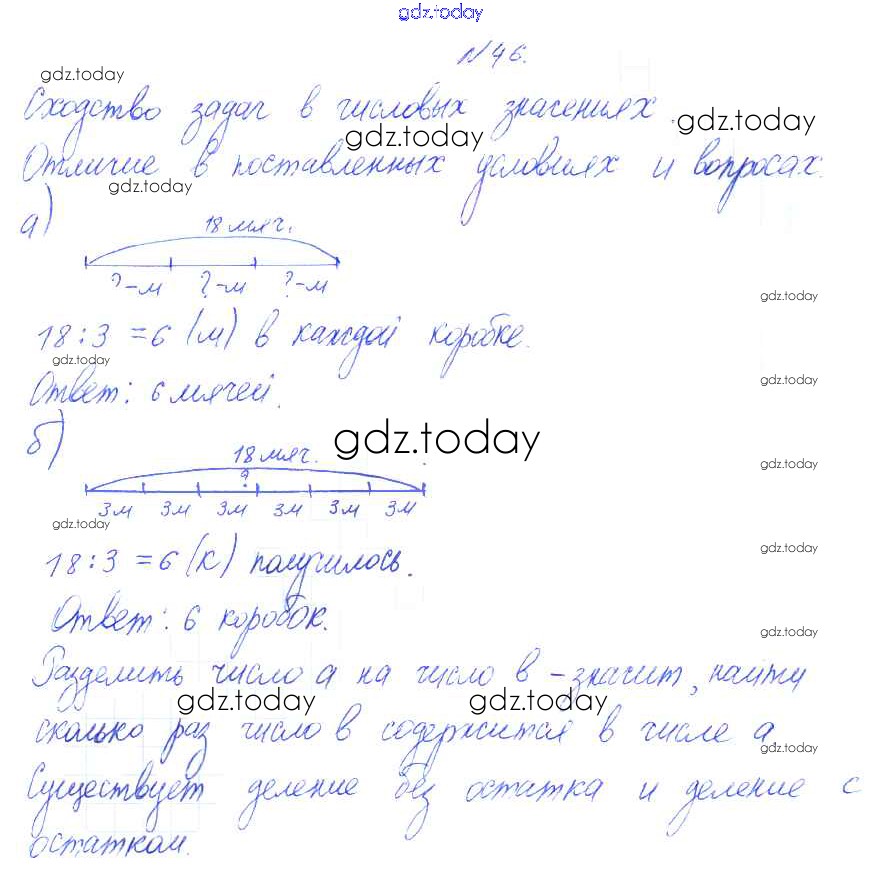 gdz.today
№46.
gdz.today
Сходство задач в числовых значениях.
gdz.today gdz.today
Отличие в поставленных условиях и вопросах.
gdz.today
а)
18 мяч.
?-м ?-м ?-м
gdz.today
18:3=6 (м) в каждой коробке.
gdz.today
gdz.today
Ответ: 6 мячей.
б)
gdz.today
18 мяч.
?
gdz.today
3м 3м 3м 3м 3м 3м
gdz.today
18:3=6 (к) получилось.
gdz.today
Ответ: 6 коробок.
gdz.today
Разделить число а на число в - значит, найти
gdz.today gdz.today
сколько раз число в содержится в числе а
gdz.today
Существует деление без остатка и деление с
остатком.